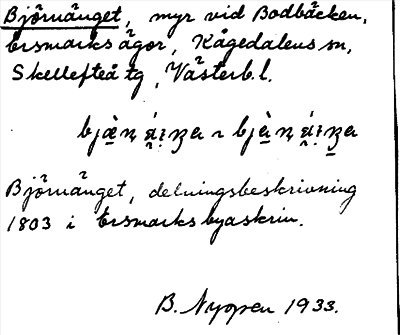 Björnänget, myr vid Bodbäcken,
Ersmarks ägor, Kågedalens sn,
Skellefteå tg, Västerb. l.
Björnänget, delningsbeskrivning
1803 i Ersmarks byaskrin.
B. Nyopen 1933.